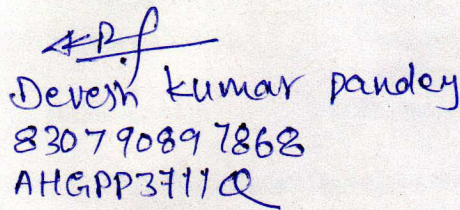 Devesh kumar pandey
830790897868
AHGPP3711Q